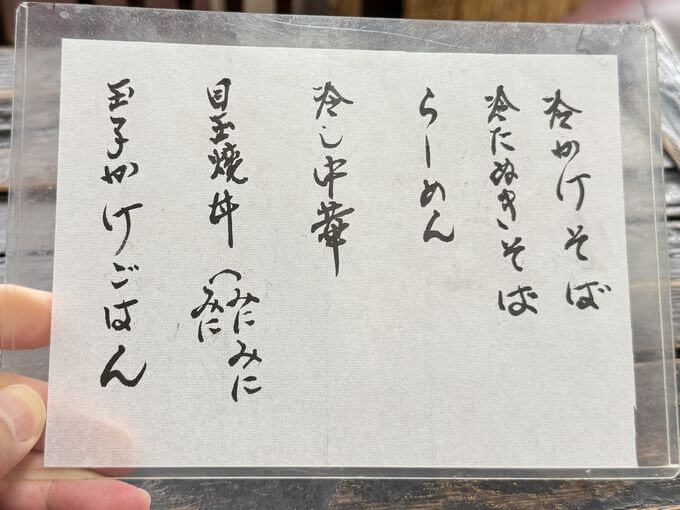 冷かけそば
冷たぬきそば
らーめん
冷し中華
目玉焼丼（みにみに
みに
玉子かけごはん